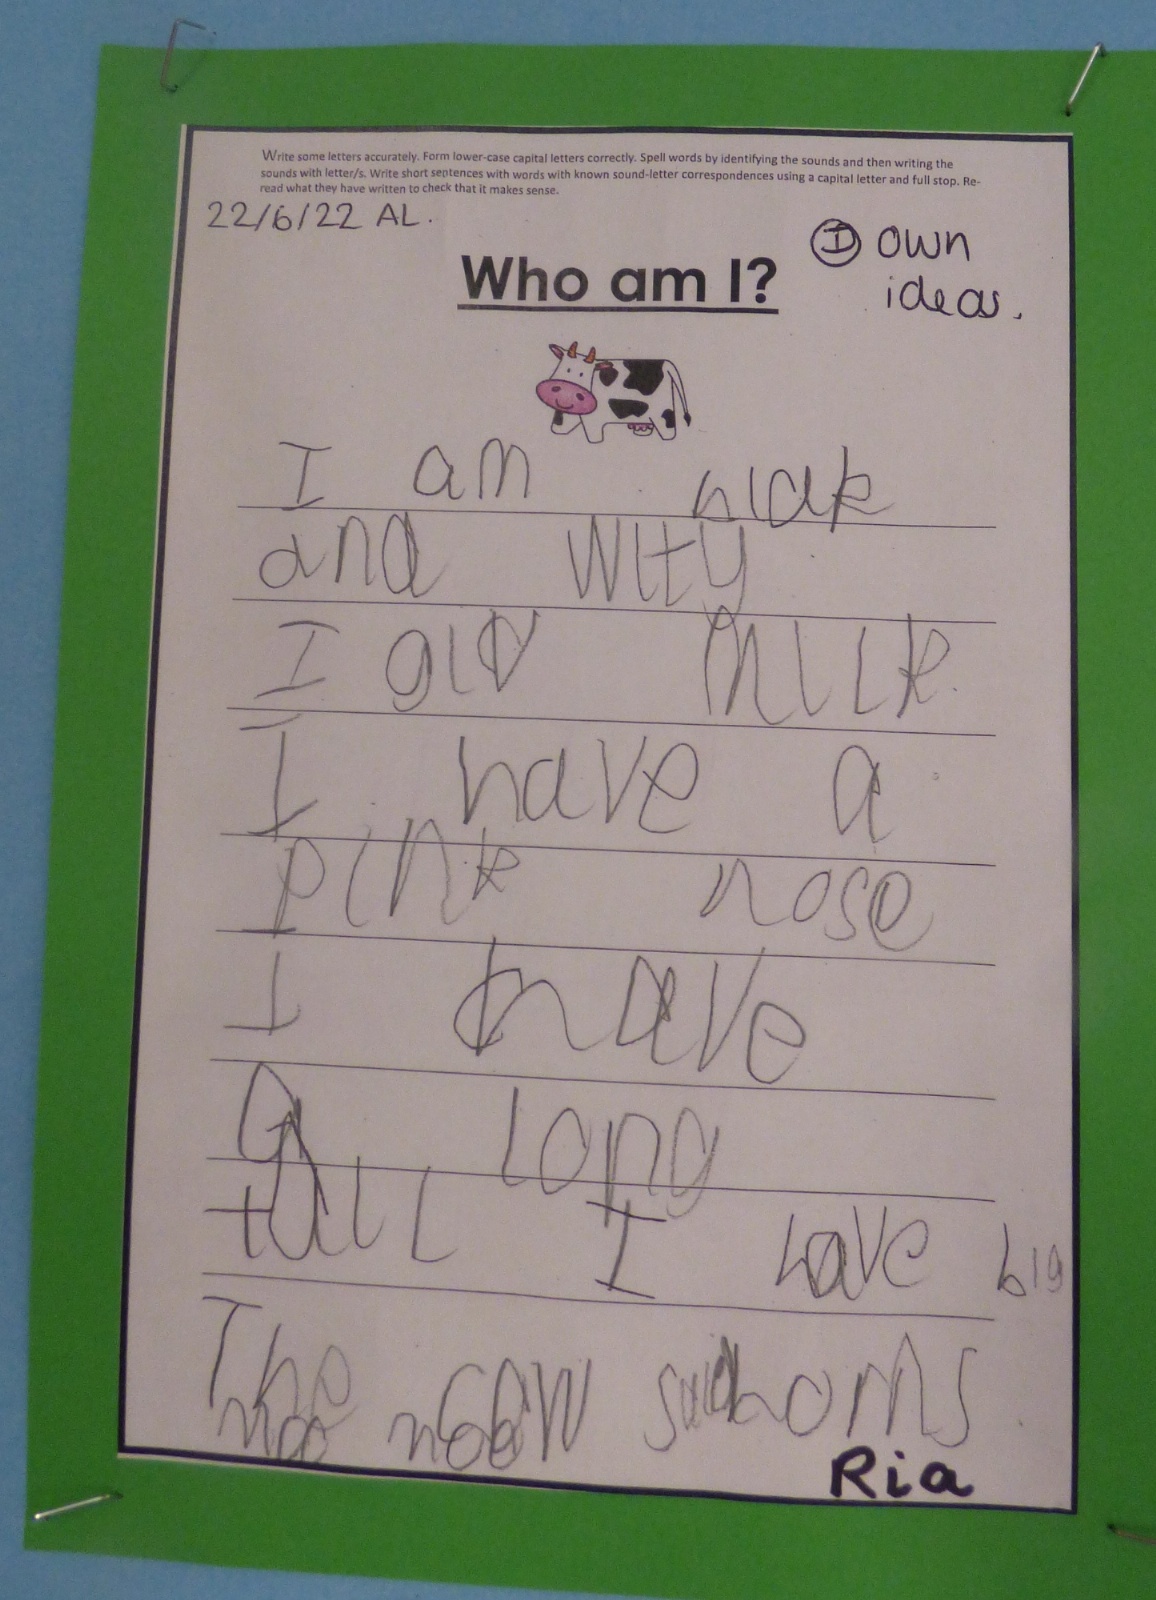 Write some letters accurately. Form lower-case capital letters correctly. Spell words by identifying the sounds and then writing the
sounds with letter/s. Write short sentences with words with known sound-letter correspondences using a capital letter and full stop. Re-
read what they have written to check that it makes sense.
22/6/22 AL.
I own
ideas.
Who am I?
I am blak
and wity
I giv milk.
I have a
pink nose
I have
a long
tall I have big
The cow said horns
moo moo
Ria